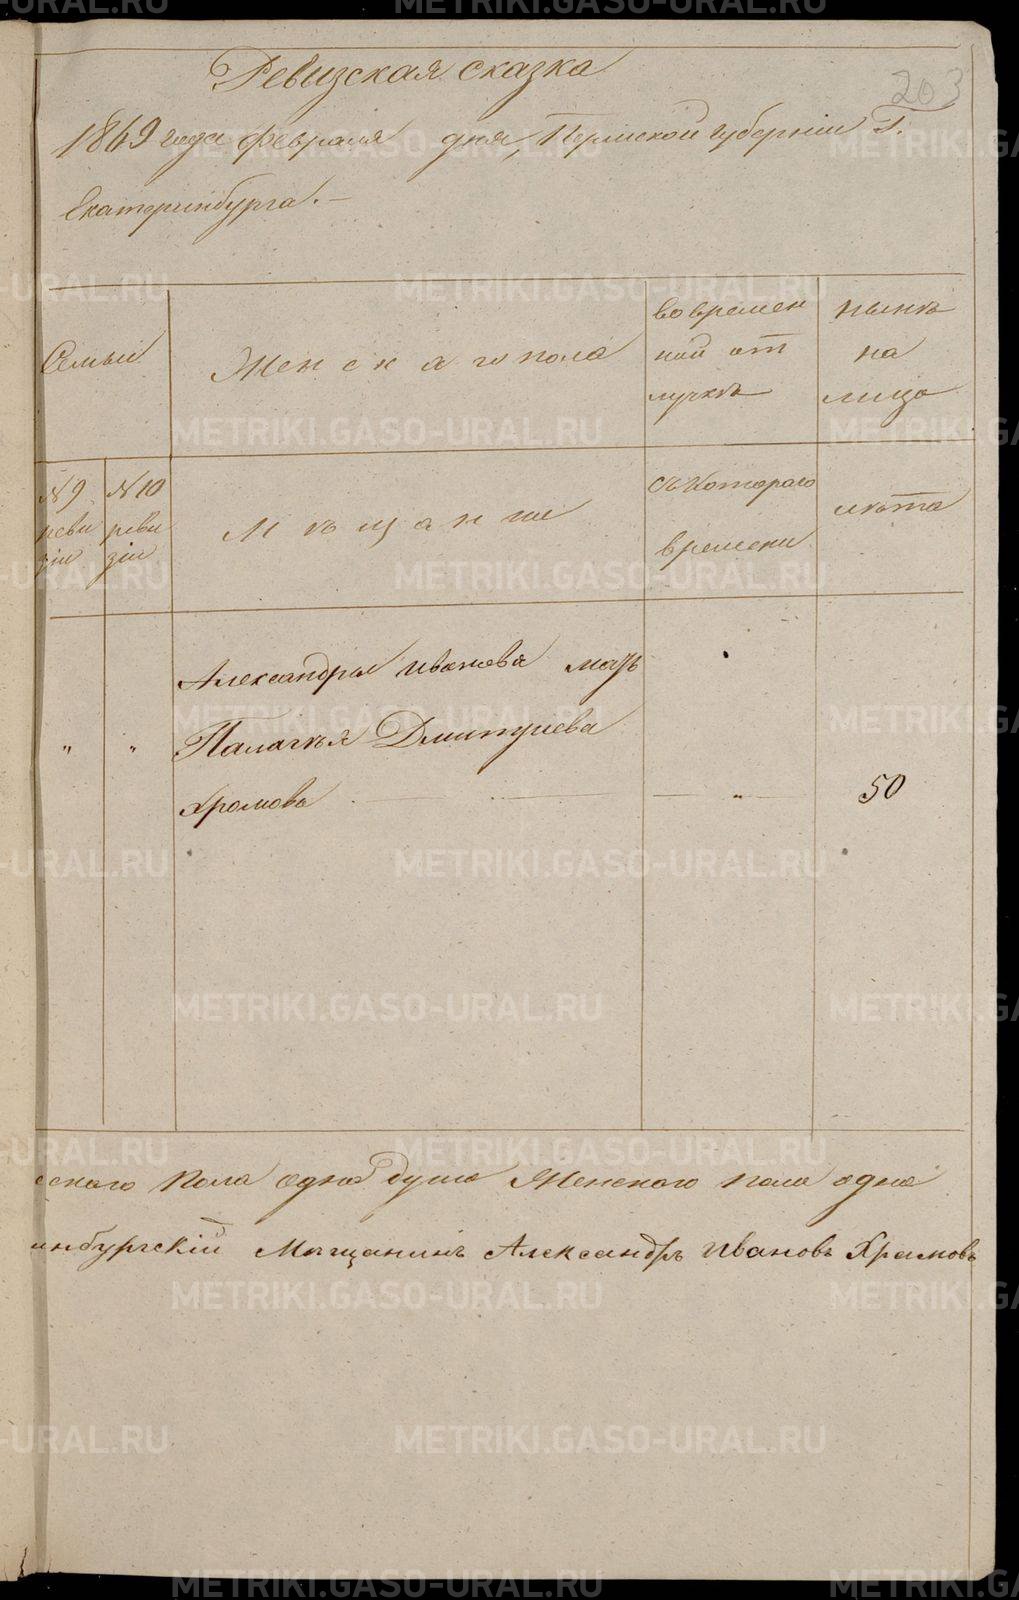 203
Ревизская сказка
1869 года февраля дня, Пермской губерніи Г.
Екатеринбурга.—
Семьи
Женскаго пола
во времен
ной от
лучкѣ
нынѣ
на
лицо
№ 9
реви
зіи
№ 10
реви
зіи
Мѣщанже
съ котораго
времени
лѣта
Александры Иванова мать
„ „ Палагѣя Дмитриева
Хромова — „ — 50
ского пола одна душа Женского пола одна
инбургскій Мещанинъ Александръ Ивановъ Храмовъ
METRIKI.GASO-URAL.RU